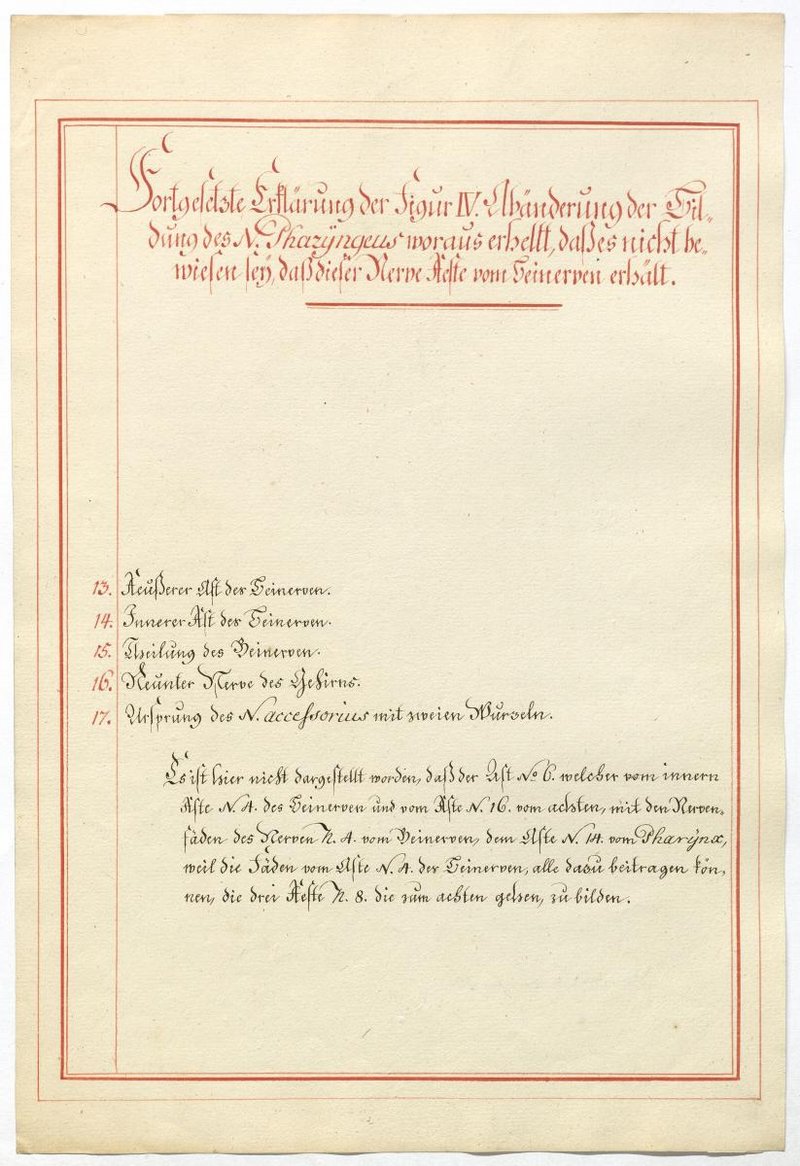 Fortgesetzte Erklärung der Figur IV. Abänderung der Bil-
dung des N. Pharÿngeus woraus erhellt, daß es nicht be-
wiesen seÿ, daß dieser Nerve Aeste vom Beinerven erhält.
13. Aeußerer Ast des Beinerven.
14. Innerer Ast des Beinerven.
15. Theilung des Beinerven.
16. Neunter Nerve des Gehirns.
17. Ursprung des N. accessorius mit zweien Wurzeln.
Es ist hier nicht dargestellt worden, daß der Ast No 6. welcher vom innern
Aste N. 4. des Beinerven und vom Aste N. 16. vom achten, mit den Nerven-
fäden des Nerven N. 4. vom Beinerven, dem Aste N. 14. vom Pharÿnx,
weil die Fäden vom Aste N. 4. der Beinerven, alle dazu beitragen kön-
nen, die drei Aeste N. 8. die zum achten gehen, zu bilden.